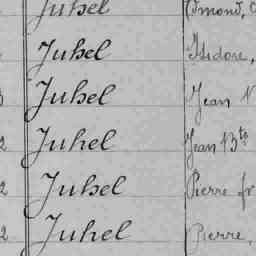 Juhel Edmond,
Juhel Isidore,
Juhel Jean
Juhel Jean Bte
2 Juhel Pierre fr
2 Juhel Pierre,